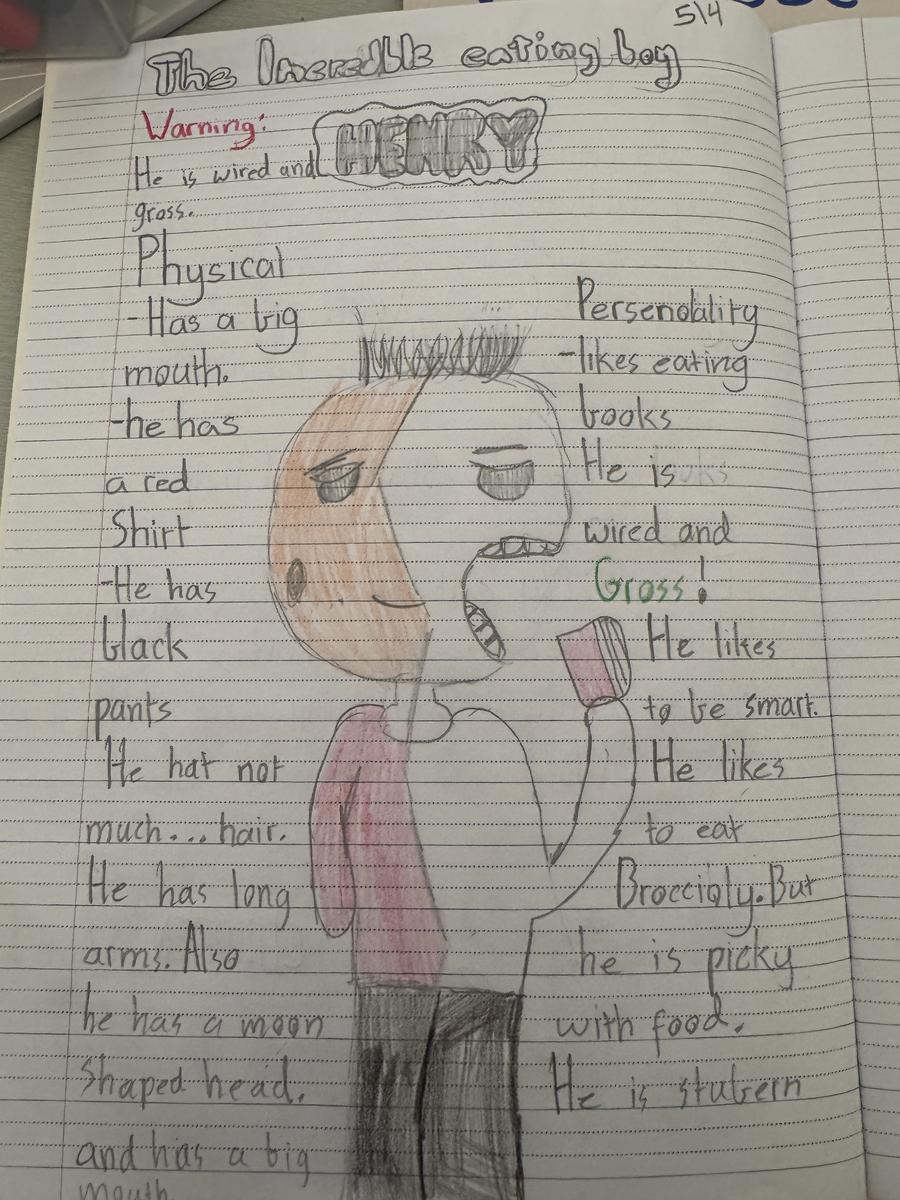 5/4
The Incredble eating boy
Warning:
HENRY
He is wired and
gross.
Physical
-Has a big
mouth.
-he has
a red
Shirt
-He has
black
pants
He hat not
much... hair.
He has long
arms. Also
he has a moon
Shaped head.
and has a big
mouth
Persendality
-likes eating
books
He is
wired and
Gross!
He likes
to be smart.
He likes
to eat
Broccioly. But
he is picky
with food.
He is stubern